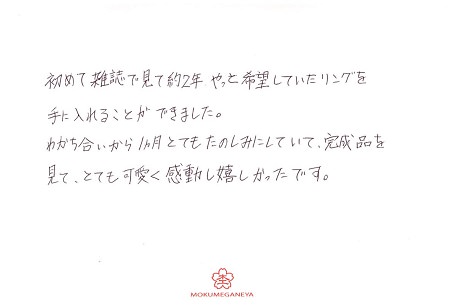 初めて雑誌で見て約2年 やっと希望していたリングを
手に入れることができました。
わかち合いから1ヵ月とてもたのしみにしていて、完成品を
見て、とても可愛く感動し嬉しかったです。
MOKUMEGANEYA